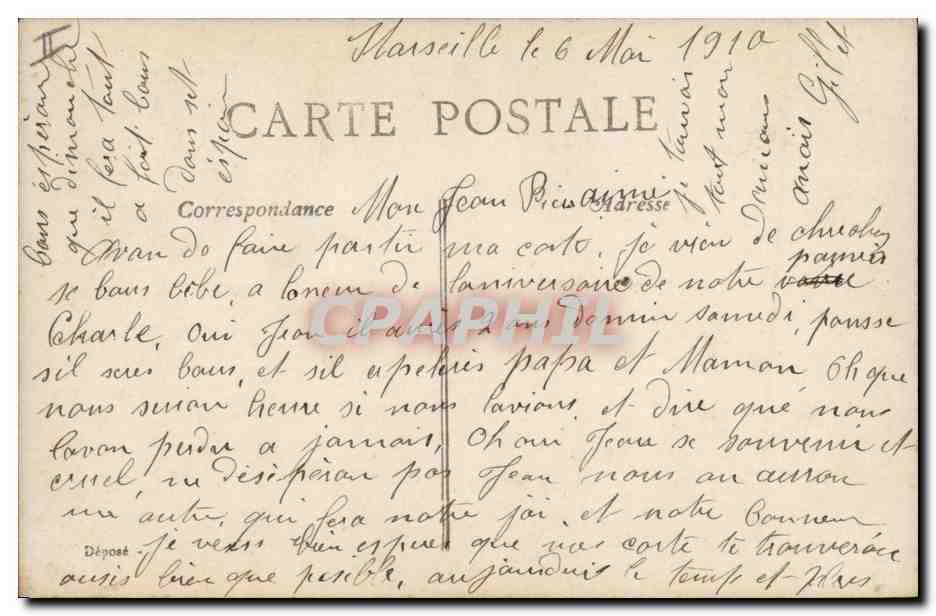 Marseille le 6 Mai 1910
CARTE POSTALE
Correspondance
Adresse
Mon Jean Bien aimé
Avan de faire partir ma carte, je vien de chuchez
se baus bébé, a loneur de laniversaire de notre pauvres
Charle, oui Jean il aurès 2 ans domin samedi, pousse
sil seres baus, et sil apeleres papa et Maman, Oh que
nous serion heure si nous lavions, et dire que nous
lavon perdu a jamais, Oh oui Jean se souvenir et
cruel, ne désespéran pas Jean nous an auron
une autre, qui fera notre joi, et notre bonneur
je veus bien espérer que nos carte te trouverón
ausis bien que posible, aujourduis le temp et plus
CPAPHIL
Déposé
baus espéron
que dimanche
il fera tout
a fait baus
dans set
éspoir
je tanvoi
tout mon
amais Gil et